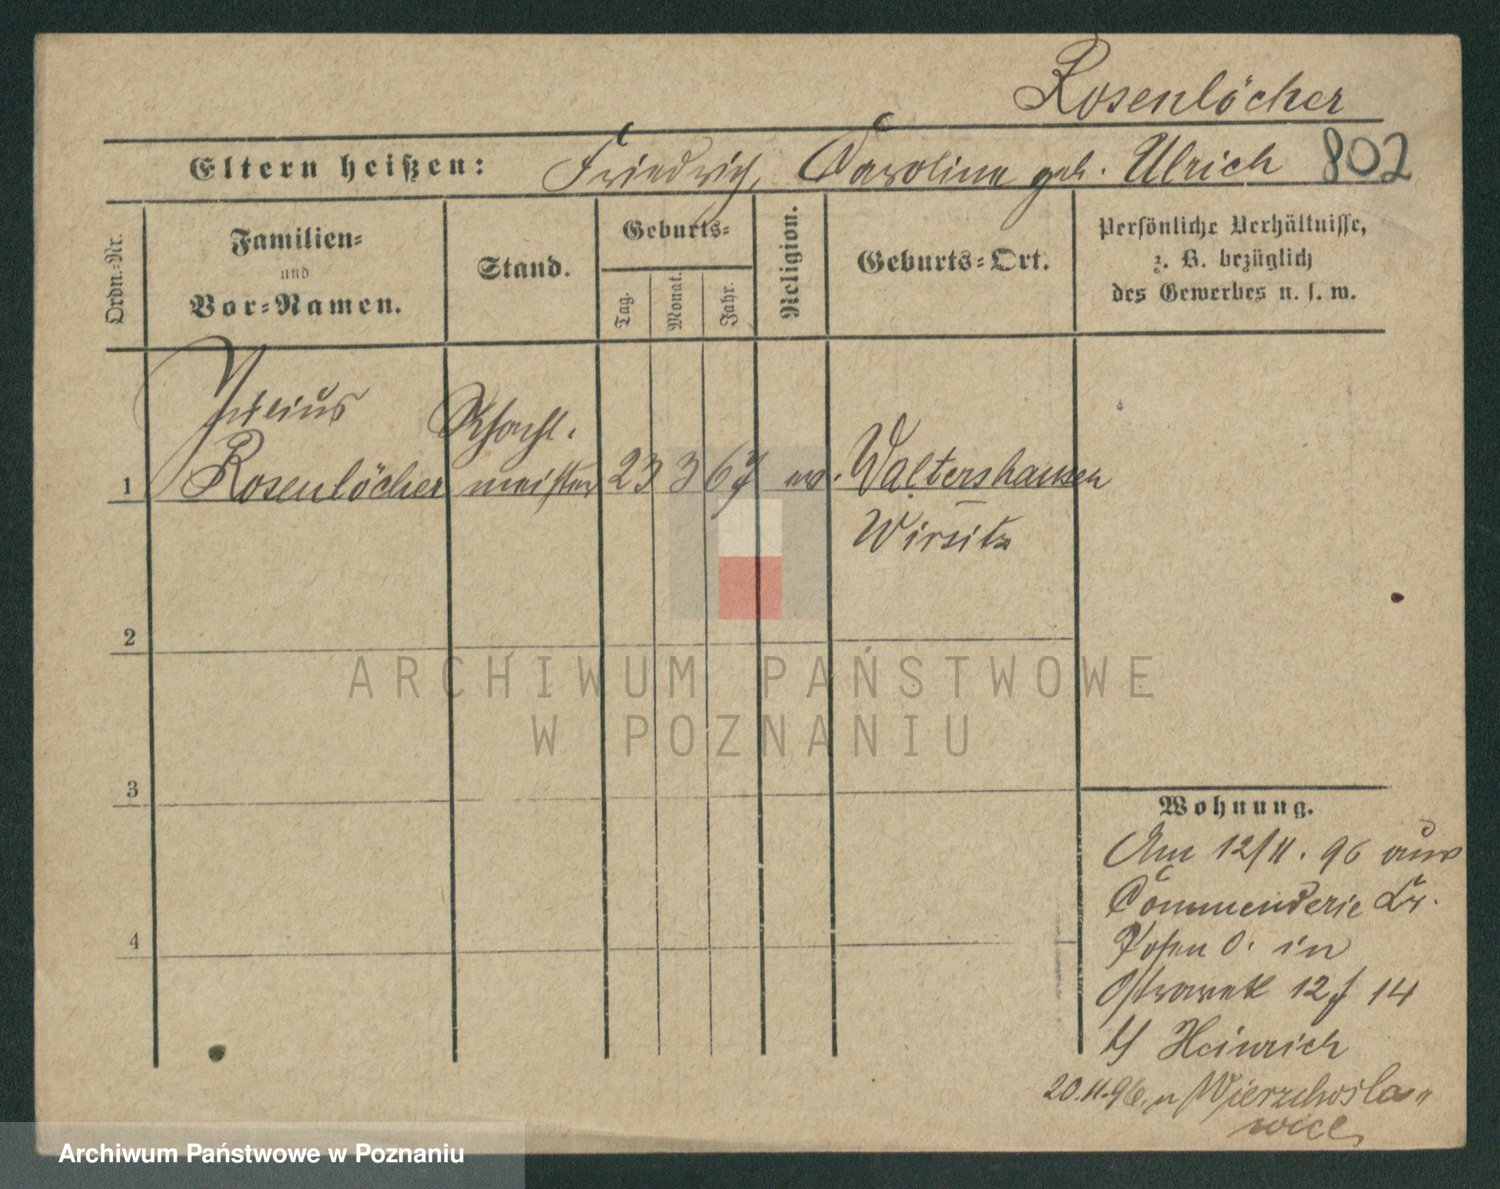 Rosenlöcher
Eltern heißen: Friedrich, Carolina geb. Ulrich 802
Ordn.-Nr.
Familien-
und
Vor-Namen.
Stand.
Geburts-
Tag.
Monat.
Jahr.
Religion.
Geburts-Ort.
Persönliche Verhältnisse,
z. B. bezüglich
des Gewerbes u. s. w.
Julius
Schacht-
1 Rosenlöcher meister 23 3 67 ev. Waltershausen
Wirsitz
2
3
4
Wohnung.
Am 12/11. 96 aus
Commenderie Kr.
Posen O. in
Ostrowek 12 / 14
b/ Heinrich
20.11.96. n Wierzchosla-
wice
ARCHIWUM PAŃSTWOWE
W POZNANIU
Archiwum Państwowe w Poznaniu